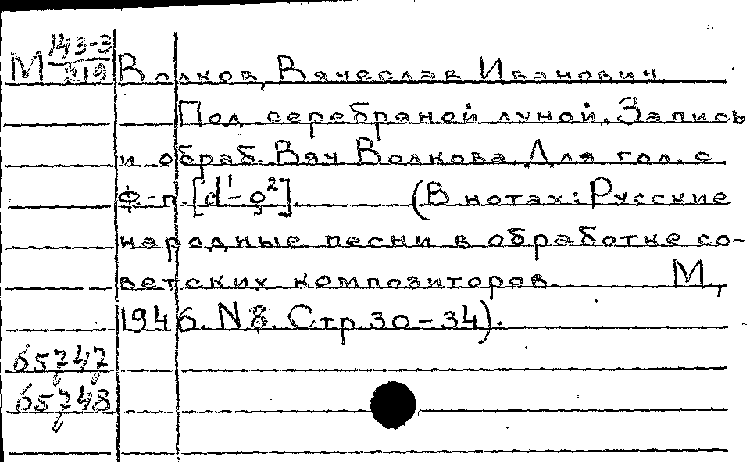 М 143-3/319 Волков, Вячеслав Иванович.
Под серебряной луной. Запись
и обраб. Вяч. Волкова. Для гол. с
ф-п. [d¹-g²]. (В нотах: Русские
народные песни в обработке со-
ветских композиторов. М.,
1946. N 8. Стр. 30-34).
65747
65748